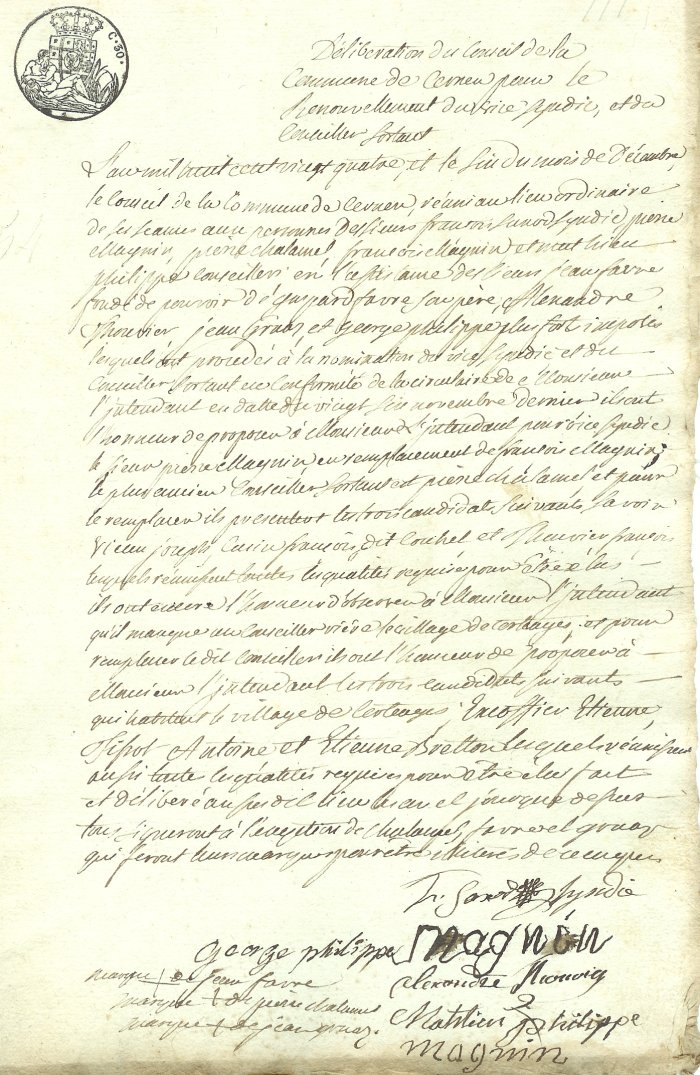 C. 50.
Déliberation du Conseil de la
Commune de Cernex pour le
renouvellement du vice syndic, et du
Conseiller Sortant
L'an mil huit cent vingt quatre, et le six du mois de Décembre,
le Conseil de la Commune de Cernex, réuni au lieu ordinaire
de ses séances aux personnes des sieurs françois Sanod syndic pierre
Magnin, pierre Chalamel, françois Magnin et mathieu
philippe Conseillers en l'assistance des sieurs jean favre
fondé de pouvoir de gaspard favre son père, Alexandre
Thouvier, jean gruaz et george philippe plus fort imposés
lesquels ont procedés à la nomination du vice syndic et du
Conseiller Sortant en Conformité de la circulaire de Monsieur
l'jntendant en datte du vingt six novembre dernier ils ont
l'honneur de proposer à Monsieur l'jntendant pour vice syndic
le sieur pierre Magnin en remplacement de françois Magnin;
le plus ancien Conseiller Sortant est pierre Chalamel et pour
le remplacer ils presentent les trois candidats Suivants Savoir
joseph, Cusin françois, dit Couchet et Thouvier françois
lesquels réunissent touttes les qualités requises pour être élus
ils ont encore l'honneur d'observer à Monsieur l'jntendant
qu'il manque un Conseiller rière le village de Corteages. et pour
remplacer le dit Conseiller ils ont l'honneur de proposer à
Monsieur l'jntendant les trois candidats Suivants
qui habitent le village de Corteages; Excoffier Etienne,
Antoine et Etienne Bretton lesquels réunissent
aussi toute les qualités requises pour être élus fait
et délibéré au susdit lieu les an et jour que dessus
tous signeront à l'exception de Chalamel, favre et gruaz
qui feront leurs marques pour être illiteres de ce enquis
Sanod syndic
george philippe magnin
marque + de jean favre alexandre
marque + de pierre chalamel
marque + de jean gruaz Mathieu philippe
magnin